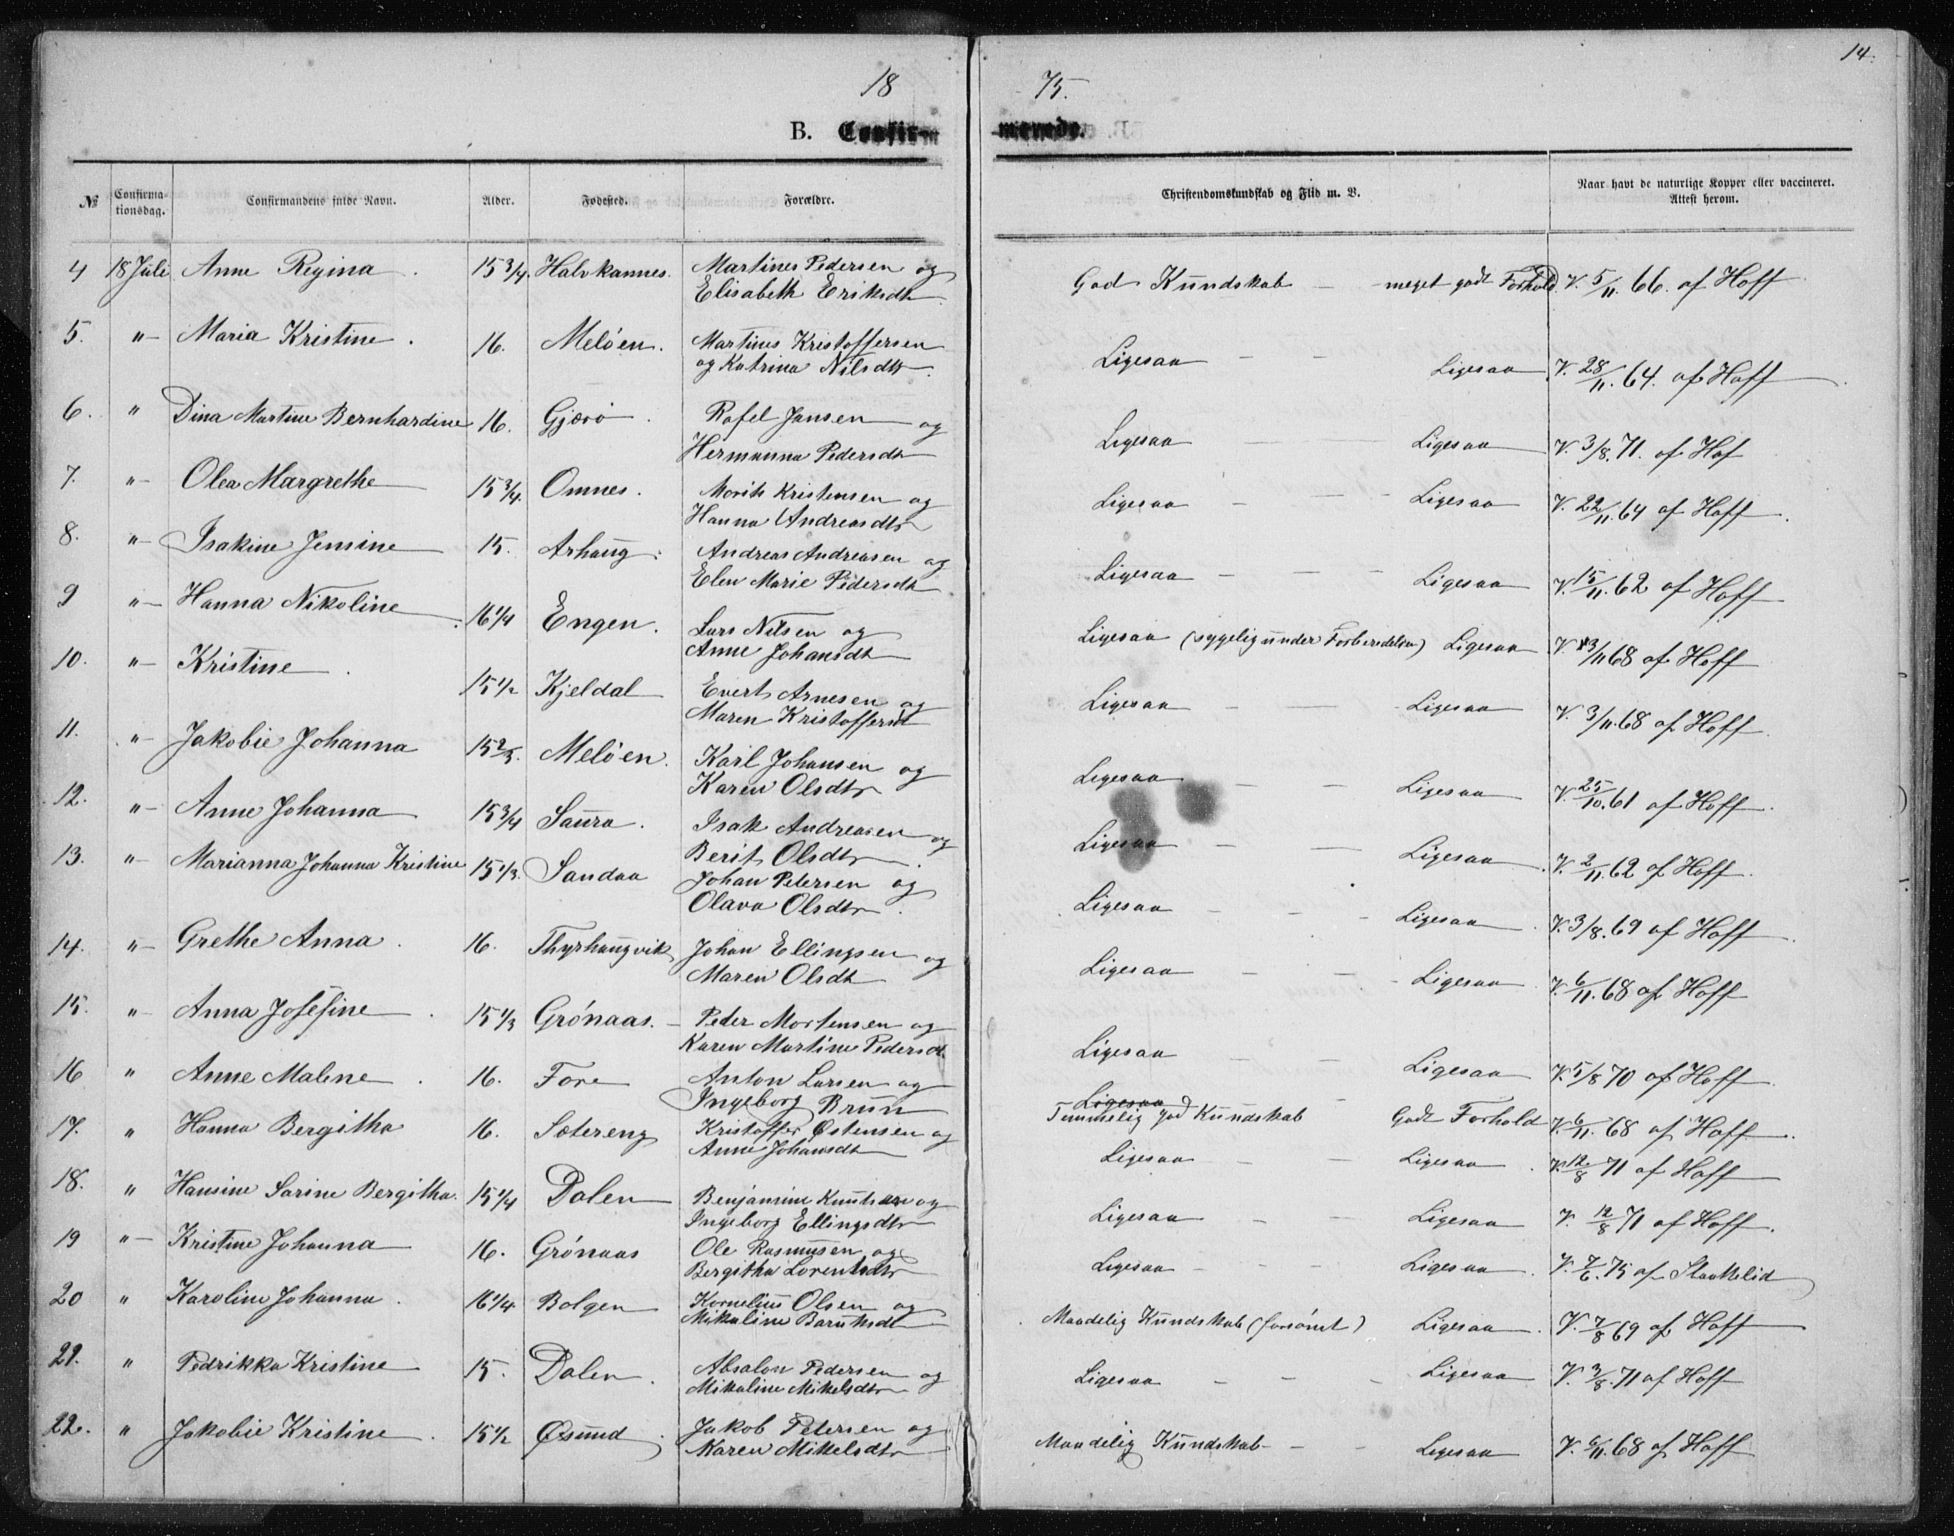 14.
18 75.
B. Confirmerede.
№ Confirmationsdag. Confirmandens fulde Navn. Alder. Fødested. Forældre. Christendomskundskab og Flid m. V. Naar havt de naturlige Kopper eller vaccineret. Attest herom.
4 18 Juli Anne Regina 15 3/4 Halvkannes. Martines Pedersen og God Kundskab — meget godt Forhold. V. 5/11. 66. af Hoff
Elisabeth Eriksdt
5. " Maria Kristine. 16. Melöen. Martines Kristoffersen Ligesaa — — Ligesaa V. 28/11. 64. af Hoff
og Katrina Nilsdtr.
6. " Dina Martine Bernhardine 16. Gjærö. Rafel Jansen og Ligesaa — — Ligesaa V. 3/8. 71. af Hof
Hermanna Pedersdt
7. " Olea Margrethe 15 3/4. Omnes. Morits Kristensen og Ligesaa — — Ligesaa V. 22/11. 64 af Hoff.
Hanna Andreasdtr
8. " Isakine Jensine 15. Arhaug. Andreas Andreasen og Ligesaa — — Ligesaa V. 15/11. 62 af Hoff
Elen Marie Pedersdt
9 " Hanna Nikoline 16 1/4 Engen. Lars Nilsen og Ligesaa (sygelig under Forberedelsen) Ligesaa V. 3/11 68 af Hoff
Anne Johansdt
10. " Kristine. 15 1/2 Kjeldal Evert Arnesen og Ligesaa — — Ligesaa V. 3/11. 68 af Hoff
Maren Kristoffersdt
11. " Jakobie Johanna 15 2/3. Melöen. Karl Johansen og Ligesaa — — Ligesaa V. 25/10. 61 af Hoff.
Karen Olsdtr
12. " Anne Johanna 15 3/4 Saura. Isak Andreasen og Ligesaa — — Ligesaa V. 2/11. 62 af Hoff.
Berit Olsdtr
13. " Marianna Johanna Kristine 15 1/3. Sandaa Johan Petersen og Ligesaa — — Ligesaa V. 3/8. 69 af Hoff
Olava Olsdtr.
14. " Grethe Anna. 16. Thyrhaugvik Johan Ellingsen og Ligesaa — — Ligesaa V. 6/11. 68 af Hoff
Maren Olsdt
15. " Anna Josefine. 15 1/3 Grönaas. Peder Mortensen og Ligesaa — — Ligesaa V. 5/8 70 af Hoff
Karen Martine Pedersdt
16 " Anne Malene. 16. Fore Anton Larsen og Ligesaa
Ingeborg Brun Temmelig god Kundskab Godt Forhold V. 6/11. 68 af Hoff.
17. " Hanna Bergitha 16. Sætereng Kristoffer Østensen og Ligesaa — — Ligesaa V. 12/8 71 af Hoff
Anne Johansdt
18. " Hansine Sarine Bergitha. 15 1/4 Dalen Benjamine Knutsen og Ligesaa — — Ligesaa V. 12/8 71 af Hoff.
Ingeborg Ellingsdtr
19 " Kristine Johanna 16. Grönaas Ole Rasmusen og Ligesaa — — Ligesaa. V. 7/6. 75 af Slaattelid
Bergitha Lorentsdtr
20 " Karoline Johanna. 16 1/4 Bolgen Kornelius Olsen og Maadelig Kundskab (forsömt) Ligesaa. V. 7/8 69 af Hoff
Mikaline Baruksdt
21. " Fedrikka Kristine 15. Dalen. Absalon Pedersen og Ligesaa — — Ligesaa V. 3/8. 71 af Hoff
Mikaline Mikelsdtr
22. " Jakobie Kristine. 15 1/2 Øsund. Jakob Petersen og Maadelig Kundskab — — Ligesaa V. 6/11. 68 af Hoff
Karen Mikelsdtr